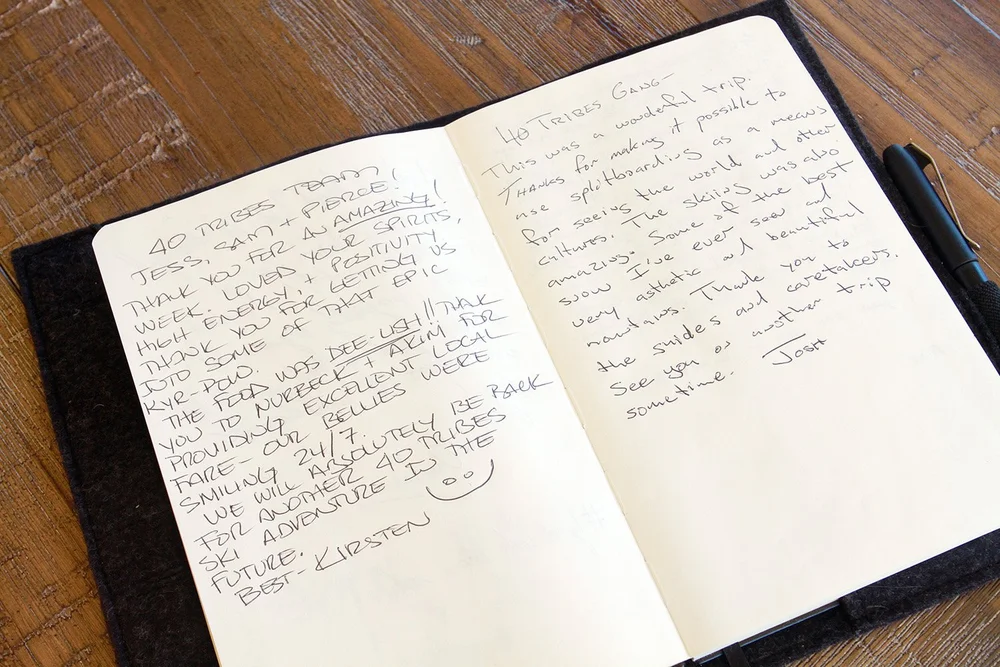 40 TRIBES TEAM
JESS, SAM + PIERCE!
THANK YOU FOR AN AMAZING!
WEEK. LOVED YOUR SPIRITS,
HIGH ENERGY, + POSITIVITY
THANK YOU FOR GETTING US
INTO SOME OF THAT EPIC
KYR-POW.
THE FOOD WAS DEE-LISH!! THANK
YOU TO NURBECK + AKIM FOR
PROVIDING EXCELLENT LOCAL
FARE - OUR BELLIES WERE
SMILING 24/7.
WE WILL ABSOLUTELY BE BACK
FOR ANOTHER 40 TRIBES
SKI ADVENTURE IN THE
FUTURE.
BEST - KIRSTEN
40 TRIBES GANG-
This was a wonderful trip.
THANKS for making it possible to
use splitboarding as a means
for seeing the world and other
cultures. The skiing was also
amazing. Some of the best
snow I've ever seen and
very asthetic and beautiful
mountains. Thank you to
the guides and caretakers.
See you on another trip
sometime.
JOSH